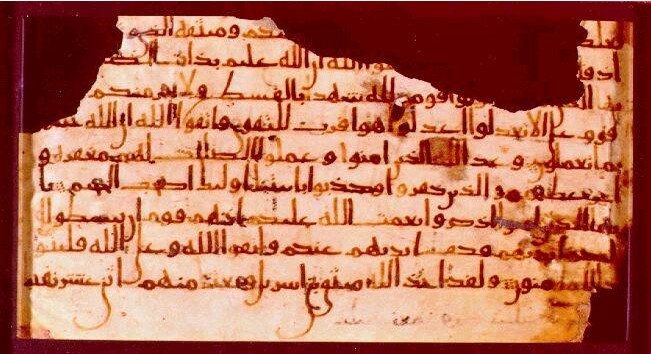 عليكم وميثقه الذي
وا الله ان الله عليم بذات
قومين لله شهدا بالقسط ولا يجرمنكم
قوم على الا تعدلوا اعدلوا هو اقرب للتقوى واتقوا الله ان الله
بما تعملون وعد الله الذين امنوا وعملوا الصلحت لهم مغفرة و
اجر عظيم والذين كفروا وكذبوا بايتنا اوليك اصحب الجحيم يا
يها الذين امنوا اذكروا نعمت الله عليكم اذ هم قوم ان يبسطوا ا
ليكم ايديهم فكف ايديهم عنكم واتقوا الله وعلى الله فليتو
كل المومنون ولقد اخذ الله ميثق بني اسريل وبعثنا منهم اثني عشر نقيبا